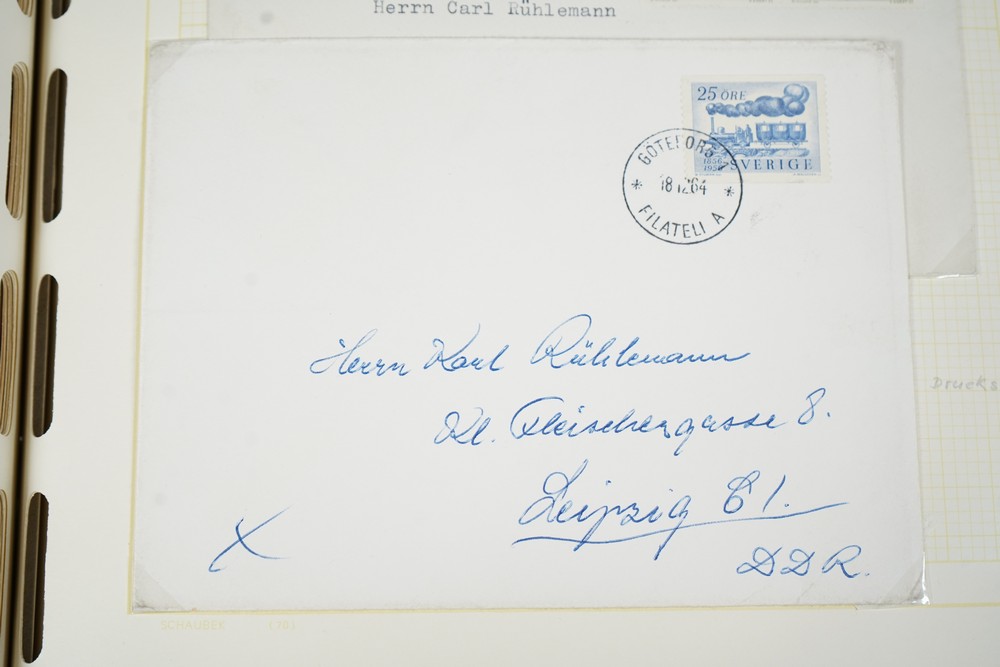 Herrn Carl Rühlemann
25 ÖRE
1856
SVERIGE
18 12 64
FILATELI A
Herrn Karl Rühlemann
Kl. Fleischergasse 8.
Leipzig C 1.
DDR.
X
Drucks
SCHAUBEK